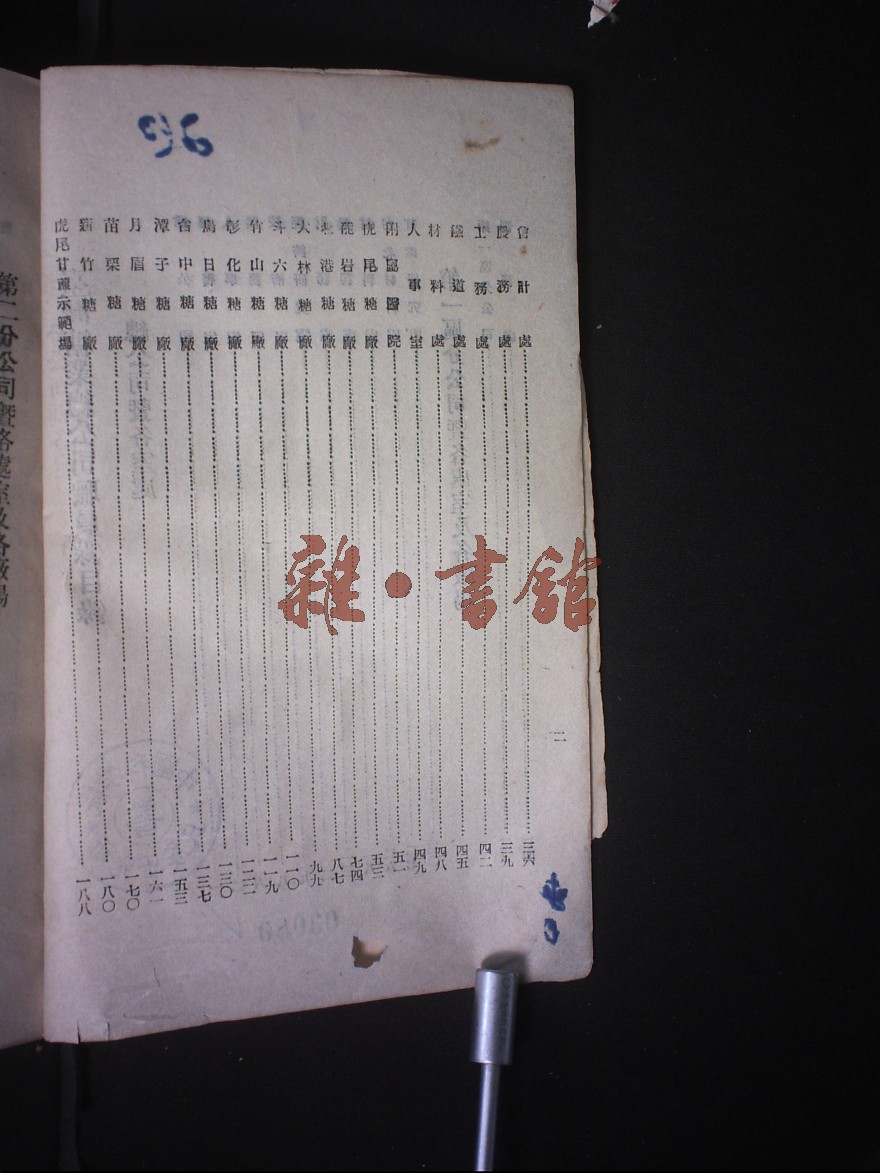 會計處……三六
農務處……三九
工務處……四二
鐵道處……四五
材料處……四八
人事室……四九
附屬醫院……五一
虎尾糖廠……五三
龍岩糖廠……七四
北港糖廠……八七
大林糖廠……九九
斗六糖廠……一一〇
竹山糖廠……一一九
彰化糖廠……一二二
烏日糖廠……一三〇
台中糖廠……一三七
潭子糖廠……一五三
月眉糖廠……一六一
苗栗糖廠……一七〇
新竹糖廠……一八〇
虎尾甘蔗示範場……一八八
二
雜·書館